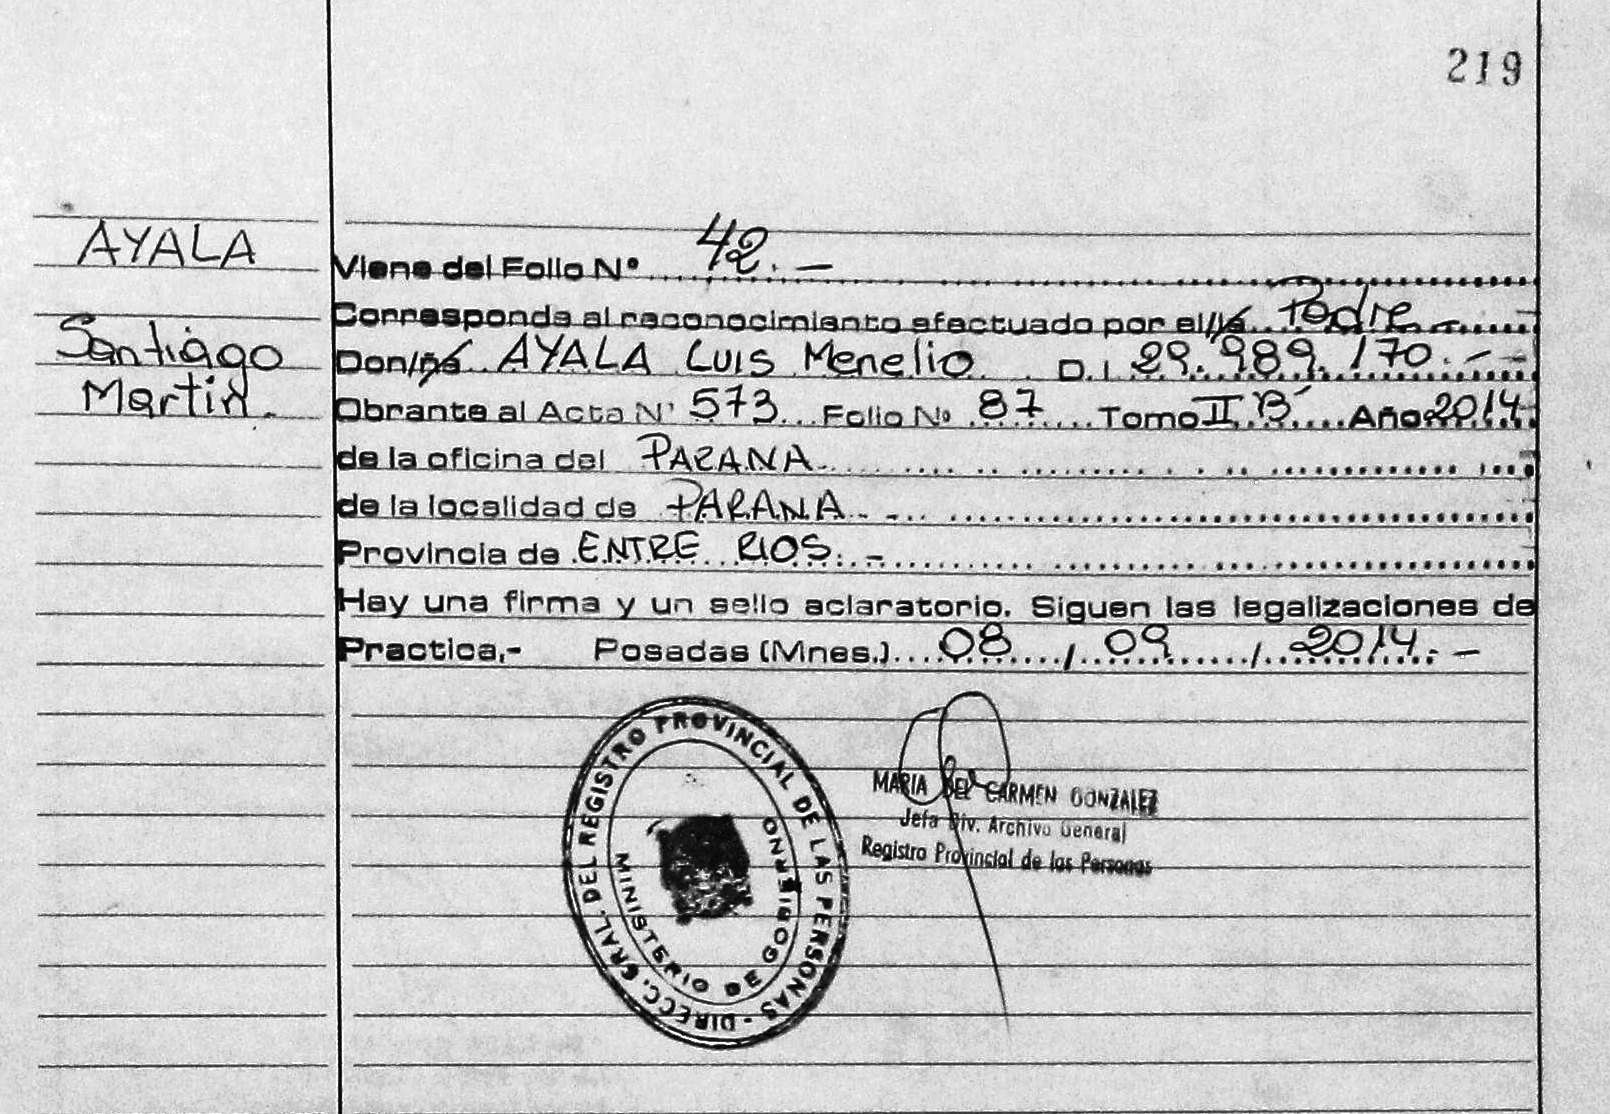 219
AYALA
Santiago
Martin.
Viene del Folio Nº 42.-
Corresponde al reconocimiento efectuado por el/la Padre
Don/ña AYALA LUIS Menelio D.I 29.989.170.-
Obrante al Acta Nº 573 Folio Nº 87 Tomo II B' Año 2014
de la oficina del PARANA
de la localidad de PARANA
Provincia de ENTRE RIOS.-
Hay una firma y un sello aclaratorio. Siguen las legalizaciones de
Practica.- Posadas (Mnes.) 08 / 09 / 2014.-
DIRECC. GRAL. DEL REGISTRO PROVINCIAL DE LAS PERSONAS -
MINISTERIO DE GOBIERNO
MARIA DEL CARMEN GONZALEZ
Jefa Div. Archivo General
Registro Provincial de las Personas